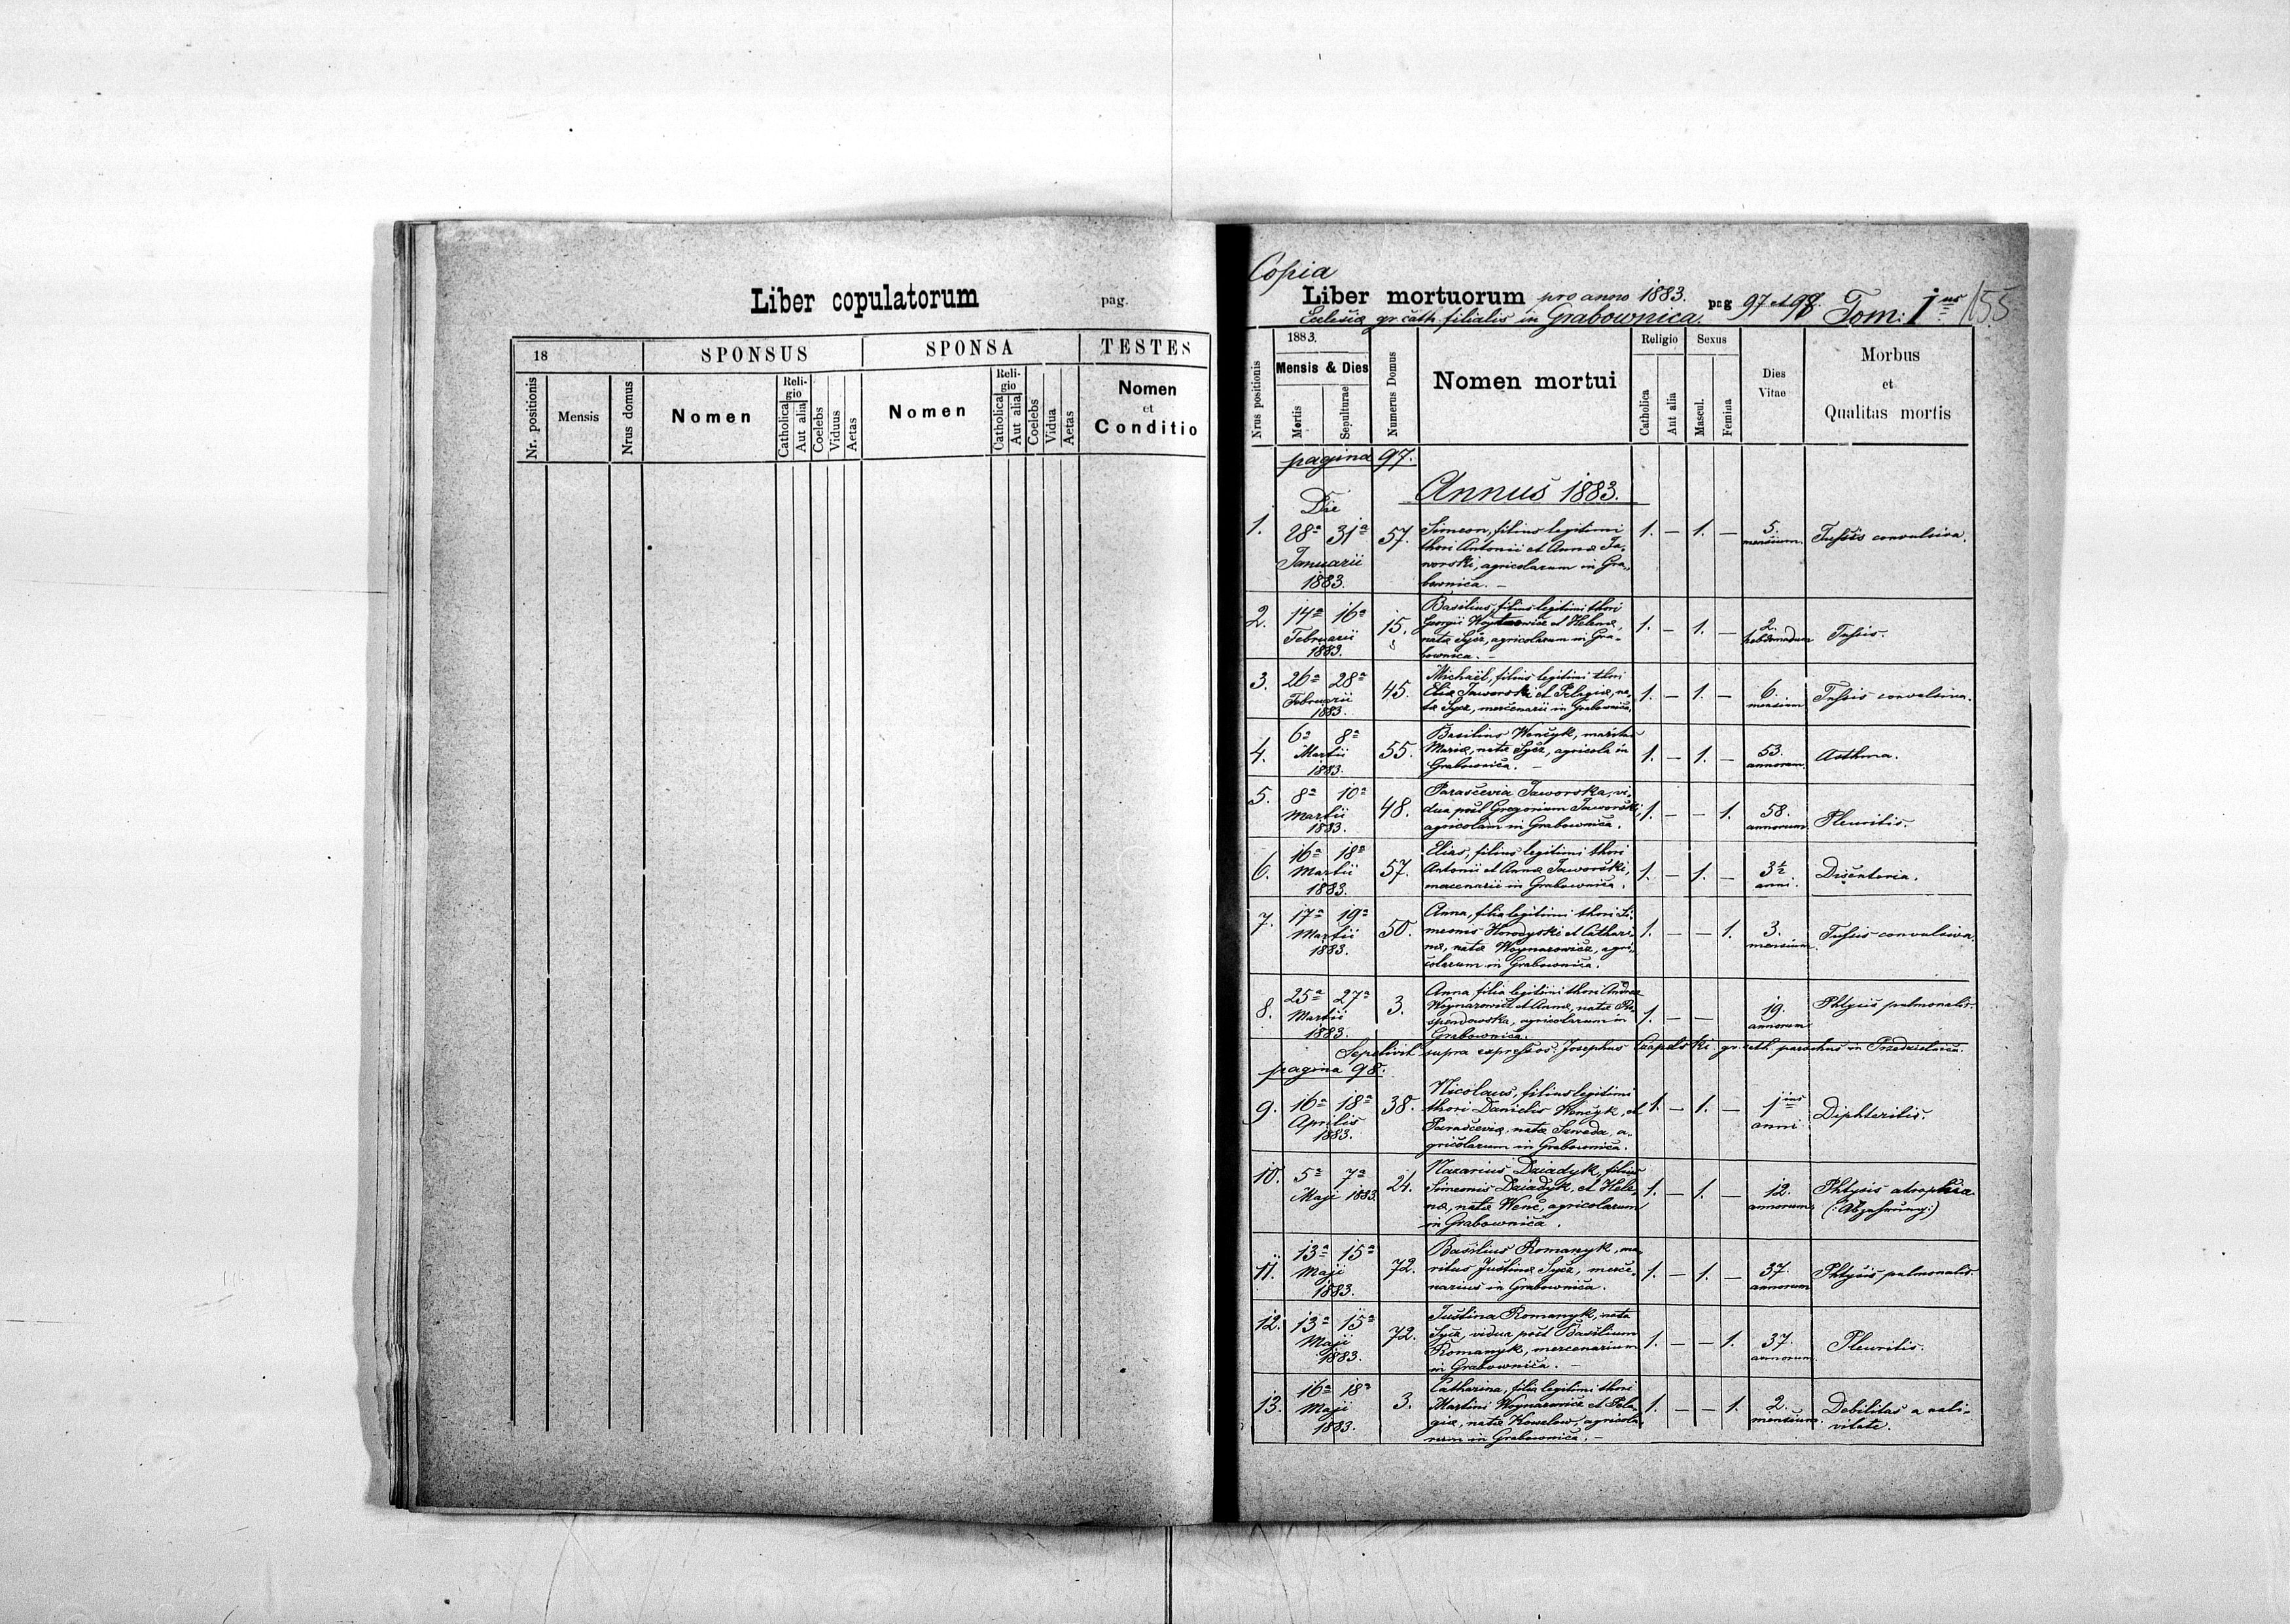 Liber copulatorum pag.
18 SPONSUS SPONSA TESTES
Nr. positionis Mensis Nrus domus Nomen Religio Catholica Aut alia Coelebs Viduus Aetas Nomen Religio Catholica Aut alia Coelebs Vidua Aetas Nomen et Conditio
Copia
Liber mortuorum pro anno 1883. pag 97 et 98. Tom: I us 155
Ecclesiæ gr. cath. filialis in Grabownica.
Nrus positionis 1883. Mensis & Dies Mortis Sepulturae Numerus Domus Nomen mortui Religio Catholica Aut alia Sexus Mascul. Femina Dies Vitae Morbus et Qualitas mortis
pagina 97.
Annus 1883.
Die
1. 28a 31a Januarii 1883. 57. Simeon, filius legitimi
thori Antonii et Annæ Ja-
worski, agricolarum in Gra-
bownica. 1. — 1. — 5. mensium. Tussis convulsiva.
2. 14a 16a Februarii 1883. 15. Basilius, filius legitimi thori
Georgii et Helenæ,
natæ Sycz, agricolarum in Gra-
bownica. — 1. — 1. — 2. Tussis.
3. 26a 28a Februarii 1883. 45. Michaël, filius legitimi thori
Eliæ Jaworski et Pelagiæ, na-
tæ Sycz, mercenarii in Grabownica. 1. — 1. — 6. mensium Tussis convulsiva.
4. 6a 8a Martii 1883. 55. Basilius Wenczyk, maritus
Mariæ, natæ Sycz, agricola in
Grabownica. — 1. — 1. — 53. annorum. Asthma.
5. 8a 10a Martii 1883. 48. Parascevia Jaworska, vi-
dua post Gregorium Jaworski,
agricolam in Grabownica. 1. — — 1. 58. annorum. Pleuritis.
6. 16a 18a Martii 1883. 57. Elias, filius legitimi thori
Antonii et Annæ Jaworski,
mercenarii in Grabownica. 1. — 1. — 3½ anni. Disenteria.
7. 17a 19a Martii 1883. 50. Anna, filia legitimi thori Si-
meonis Horodyski et Cathari-
næ, natæ Woynarowicz, agri-
colarum in Grabownica. 1. — — 1. 3. mensium. Tussis convulsiva.
8. 25a 27a Martii 1883. 3. Anna filia legitimi thori Andreæ
Woynarowicz et Annæ, natæ
agricolarum in
Grabownica. 1. — — 19. annorum Phtysis pulmonalis.
Sepelivit supra expressos Josephus Czapelski gr. cath. parochus in
pagina 98.
9. 16a 18a Aprilis 1883. 38. Nicolaus, filius legitimi
thori Danielis Wenczyk, et
Parasceviæ, natæ Szweda, a-
gricolarum in Grabownica. 1. — 1. — 1 ius anni Diphteritis.
10. 5a 7a Maji 1883. 24. Nazarius Dziadyk, filius
Simeonis Dziadyk, et Hele-
næ, natæ Wenc, agricolarum
in Grabownica. 1. — 1. — 12. annorum Phtysis atrophica.
(:Abzehrung:)
11. 13a 15a Maji 1883. 72. Basilius Romanyk, ma-
ritus Justinæ Sycz, merce-
narius in Grabownica. 1. — 1. — 37. annorum Phtysis pulmonalis.
12. 13a 15a Maji 1883. 72. Justina Romanyk, nata
Sycz, vidua post Basilium
Romanyk, mercenarium
in Grabownica. — 1. — — 1. 37. annorum. Pleuritis.
13. 16a 18a Maji 1883. 3. Catharina, filia legitimi thori
Martini Woynarowicz et Pela-
giæ, natæ Kowalow, agricola-
rum in Grabownica. — 1. — — 1. 2. mensium. Debilitas a nati-
vitate.